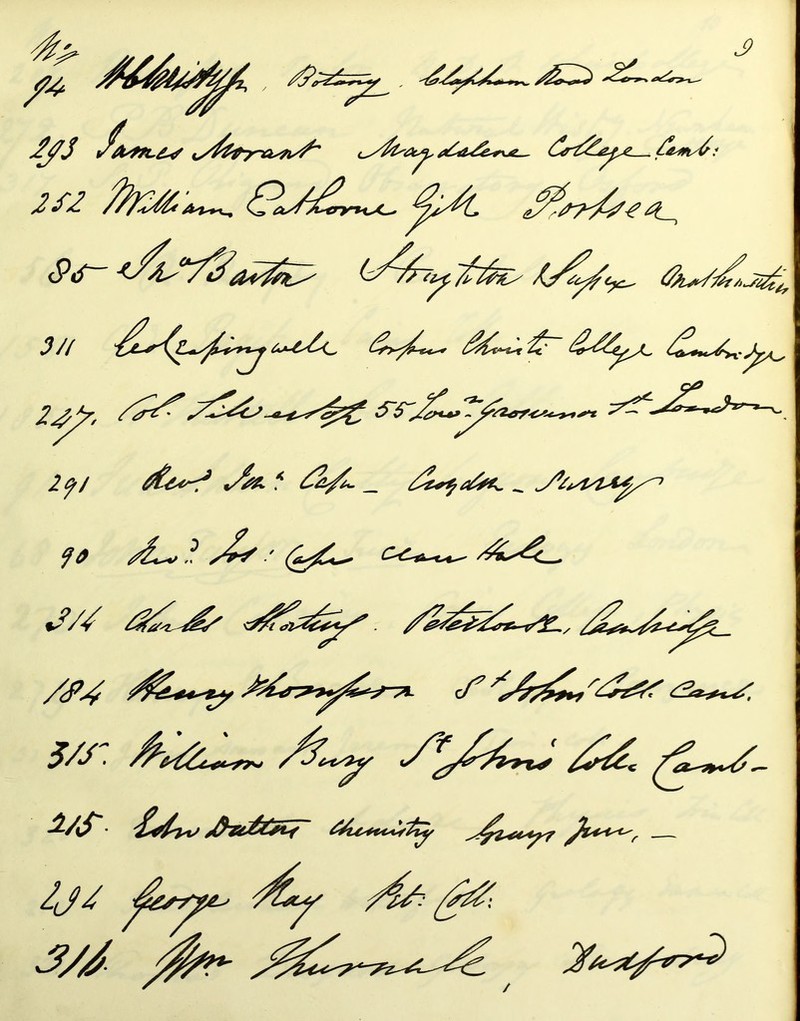 9
No
94 W Christy Jr, Botany. Clapham Road London
293 James Morant Magdalene College Camb:
252 William Eathorne Gill Portsea
85 Jno Barton Stoughton Sussex Mathematics
311 Geo Leapingwell Corpus Christi College Cambridge
247. Col. Silvertop 55 Lowr Grosvenor St London.
291 Revd Jon: Cape - Croydon - Surrey
90 Revd Jos: Cape Clare Hall
314 Charles Shorting. Peterhouse, Cambridge
184 Henry Thompson St John's Coll. Camb.
315. William Bury St John's Coll. Camb-
215. Edw Chemistry Grays Inn, -
294 George Ray Pet: Coll:
316. Wm Thurnall, Duxford